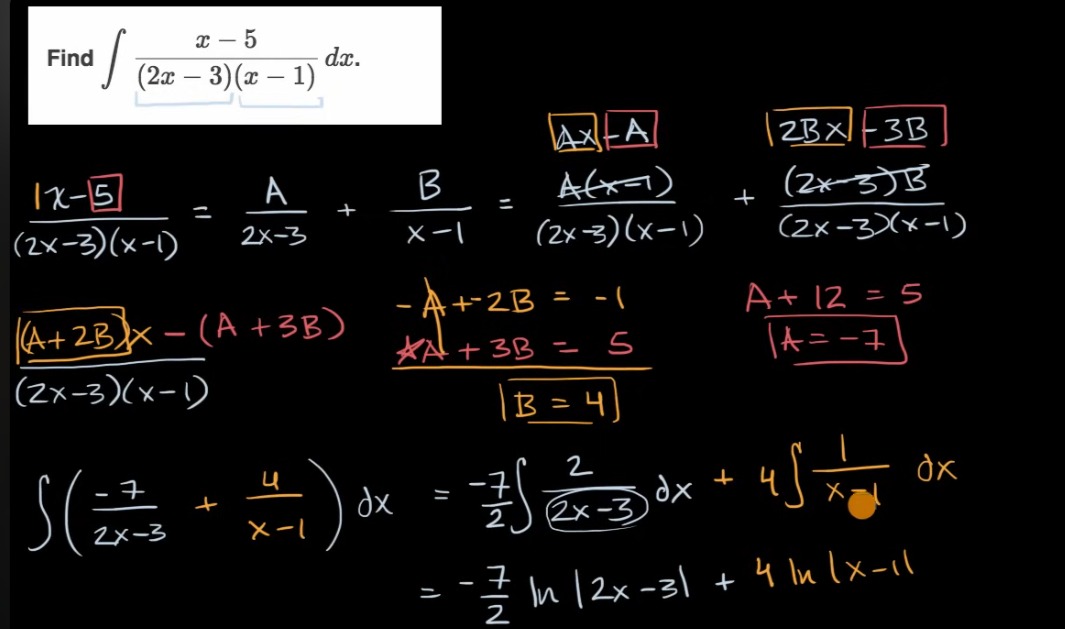 Find ∫ (x − 5)/((2x − 3)(x − 1)) dx.
(1x-5)/((2x-3)(x-1)) = A/(2x-3) + B/(x-1) = (Ax - A) A(x-1)/((2x-3)(x-1)) + (2Bx - 3B) (2x-3)B/((2x-3)(x-1))
((A+2B)x - (A+3B))/((2x-3)(x-1))
-A + -2B = -1
A + 3B = 5
B = 4
A + 12 = 5
A = -7
∫(-7/(2x-3) + 4/(x-1)) dx = -7/2 ∫ 2/(2x-3) dx + 4∫ 1/(x-1) dx
= -7/2 ln |2x-3| + 4 ln |x-1|